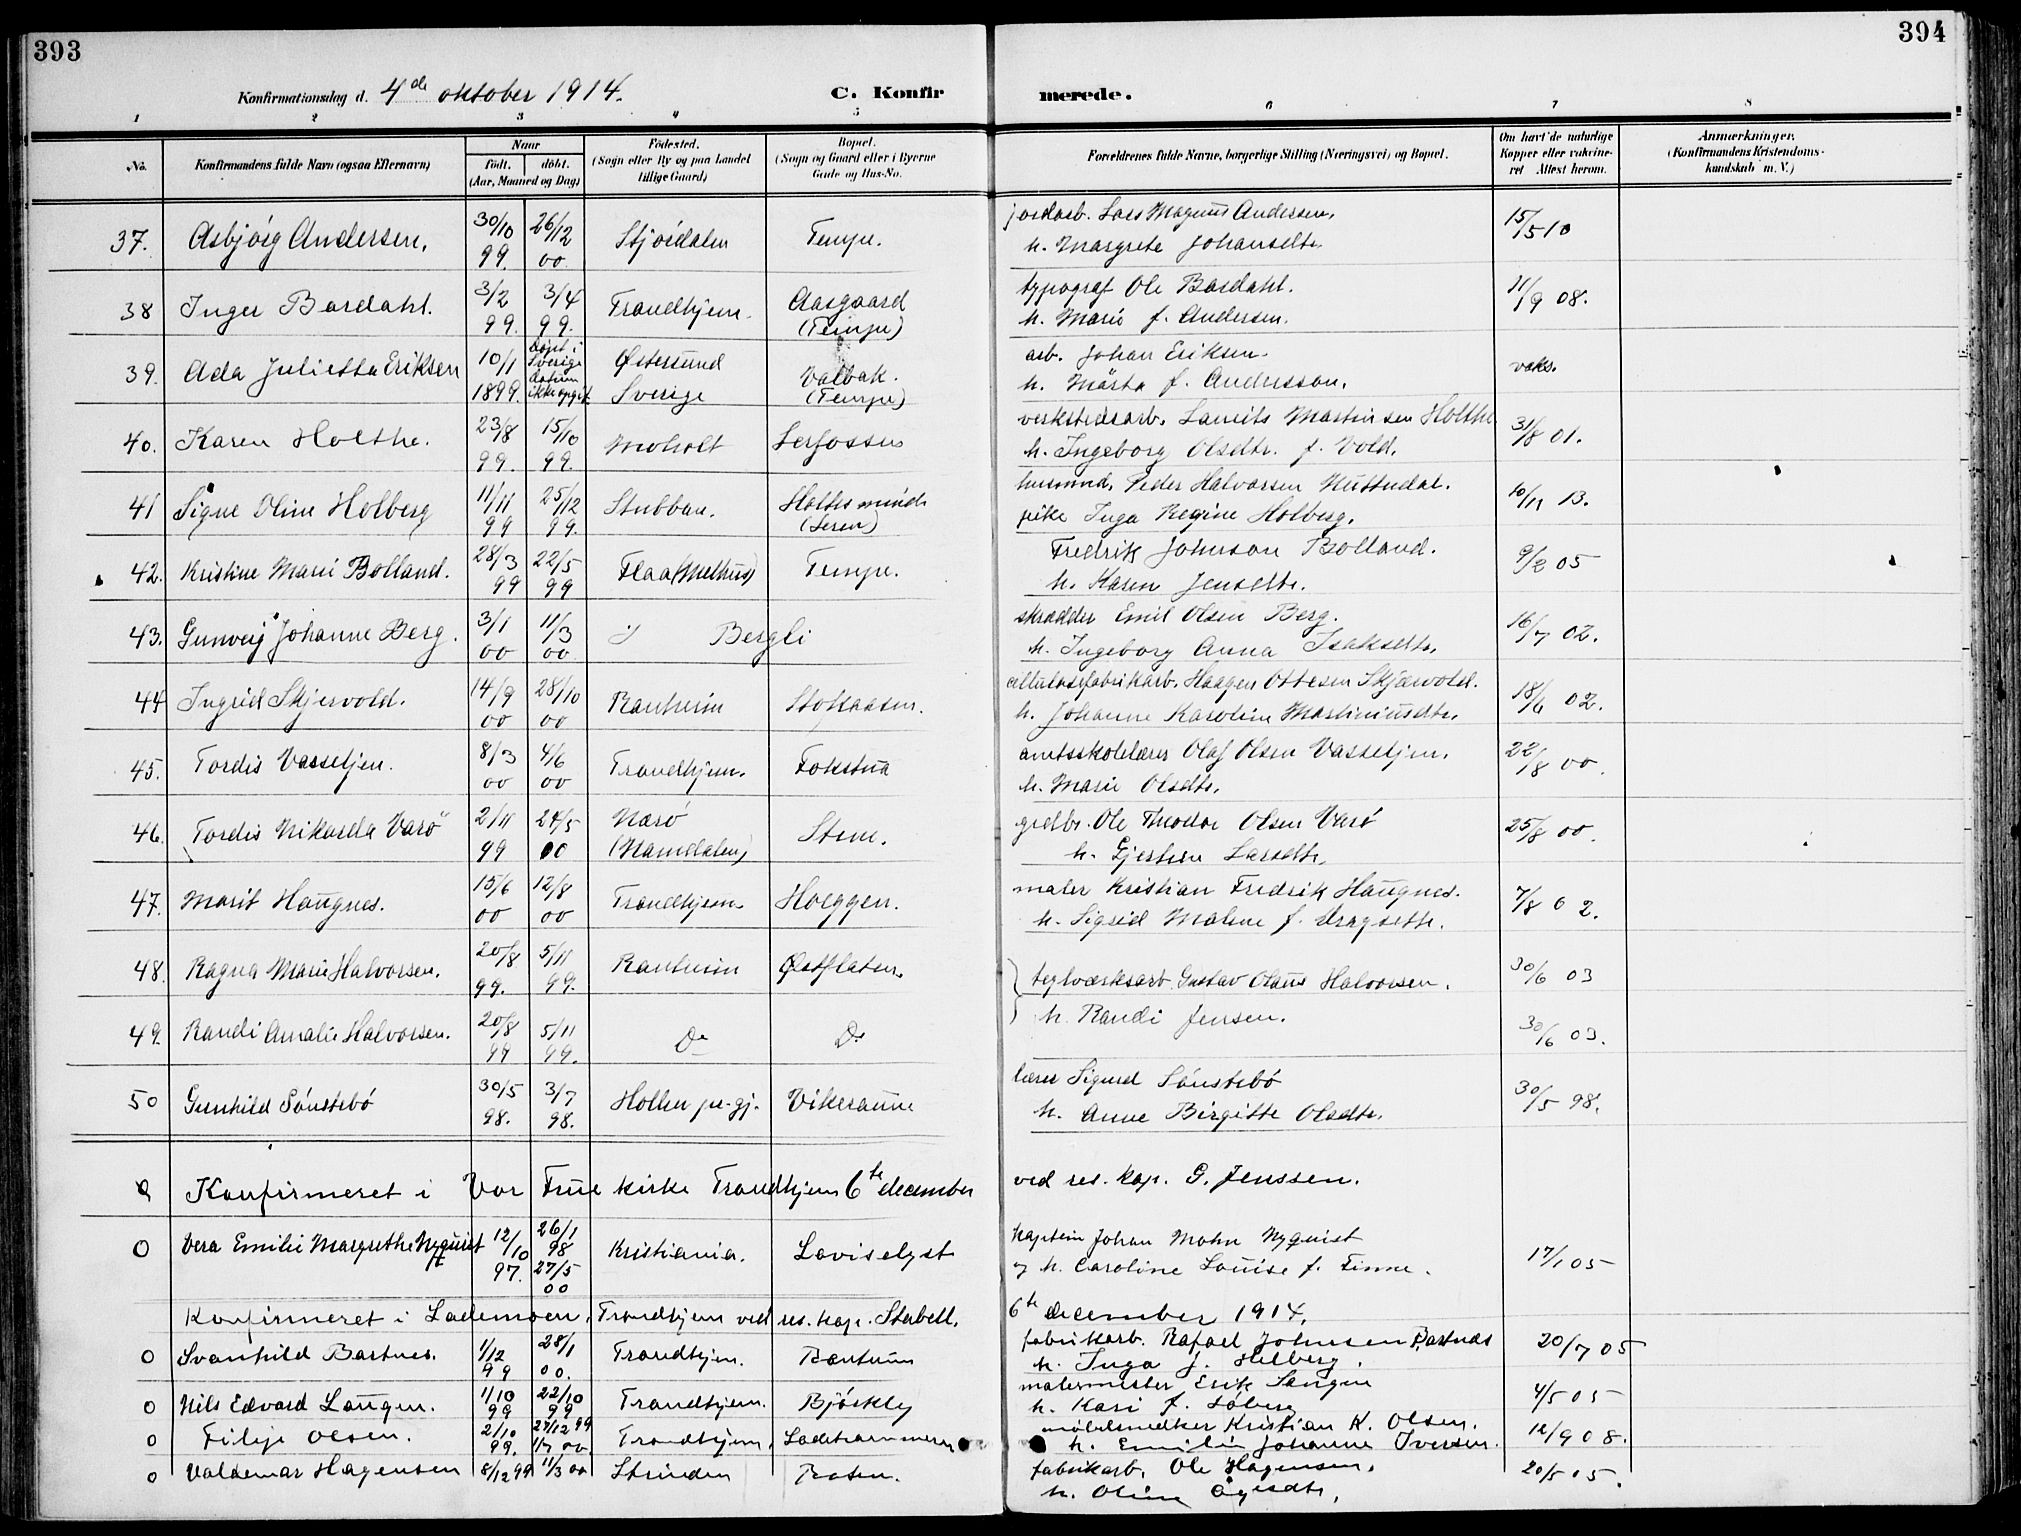 393
394
Konfirmationsdag d. 4de oktober 1914.
C. Konfir
merede.
1 2 3 4 5 6 7 8
No.
Konfirmandens fulde Navn (ogsaa Efternavn)
Naar
født. døbt.
(Aar, Maaned og Dag)
Fødested.
(Sogn eller By og paa Landet
tillige Gaard)
Bopæl.
(Sogn og Gaard eller i Byerne
Gade og Hus-No.
Forældrenes fulde Navne, borgerlige Stilling (Næringsvei) og Bopæl.
Om havt de naturlige
Kopper eller vakcine-
ret Attest herom.
Anmærkninger.
(Konfirmandens Kristendoms-
kundskab m. V.)
37. Asbjørg Andersen. 30/10 99. 26/12 00 Stjørdalen Tempe. jordarb. Lars Magnus Andersen, 15/5 10
h. Margrete Johansdtr.
38 Inger Bardahl. 3/2 99. 3/4 99. Trondhjem. Aasgaard (Tempe) typograf Ole Bardahl. 11/9 08.
h. Marie f. Andersen.
39. Ada Julietta Eriksen 10/1 1899. døpt i Sverige datum ikke opgit Østersund Sverige Valbak. (Tempe) arb. Johan Eriksen. vaks.
h. Märta f. Andersson.
40. Karen Holthe. 23/8 99. 15/10 99. Moholt Lerfossen verkstedsarb. Laurits Martinsen Holthe 31/8 01.
h. Ingeborg Olsdtr. f. Vold.
41 Signe Oline Holberg 11/11 99 25/12 99. Stubban. (Leren) husmand, Peder Halvorsen 10/11 13.
pike Inga Regine Holberg.
42. Kristine Marie Bolland. 28/3 99 22/5 99 Flaa (Melhus) Tempe. Fredrik Johnson Bolland. 9/2 05
h. Karen Jensdtr.
43. Gunveig Johanne Berg. 3/1 00 11/3 00 Bergli skrædder Emil Olsen Berg. 16/7 02.
h. Ingeborg Anna Isaksdtr.
44 Ingrid Skjervold. 14/9 00 28/10 00 Ranheim Stokaasen. cellulosefabrikarb. Haagen Ottesen Skjærvold. 18/6 02.
h. Johanne Karoline Martiniusdtr.
45. Tordis Vassetjen. 8/3 00 4/6 00 Trondhjem. Fokstua amtsskolelærer Olaf Olsen Vassetjen. 22/8 00.
h. Marie Olsdtr.
46. Tordis Nikarda Varø 2/11 99 24/5 00 Nærø (Namdalen) Stene. grdbr. Ole Theodor Olsen Varø 25/8 00.
h. Gjertine Larsdtr.
47. Marit Haugnes. 15/6 00 12/8 00 Trondhjem Hoeggen. maler Kristian Fredrik Haugnes. 7/8 02.
h. Sigrid Malene f. Dragseth.
48. Ragna Marie Halvorsen. 20/8 99. 5/11 99. Ranheim Østflaten. teglværksarb. Gustav Olaus Halvorsen. 30/6 03
49. Randi Amalie Halvorsen. 20/8 99 5/11 99. Do Do h. Randi Jensen. 30/6 03.
50 Gunhild Sønstebø 30/5 98. 3/7 98. Hollen pr.gj. Vikeraune lærer Sigurd Sønstebø 30/5 98.
h. Anne Birgitte Olsdtr.
Konfirmeret i Vor Frue kirke Trondhjem 6te december ved res. kap. G. Jenssen.
0 Vera Emilie Margrethe Nyquist 12/10 97. 26/1 98 27/5 00 Kristiania. Loviselyst kaptein Johan Mohn Nyquist 17/1 05
og h. Caroline Louise f. Finne.
Konfirmeret i Lademoen, Trondhjem ved res. kap. Starbell. 6te december 1914.
0 Svanhild Bartnes. 1/12 99 28/1 00. Trondhjem. Ranheim fabrikarb. Rafael Johnsen Bartnes 20/7 05
h. Inga f. Helberg.
0 Nils Edvard Laugen. 1/10 99 22/10 99 Trondhjem. Bjørkly malermester Erik Langen 4/5 05
h. Kari f. Løberg
0 Filip Olsen. 2/10 99. 27/12 99 Trondhjem. Ladehammeren møbelsnedker Kristian K. Olsen. 12/9 08.
h. Emilie Johanne Iversen.
0 Valdemar Hagensen 8/12 99 11/3 00 Strinden Rosen. fabrikarb. Ole Hagensen. 20/5 05.
h. Oline